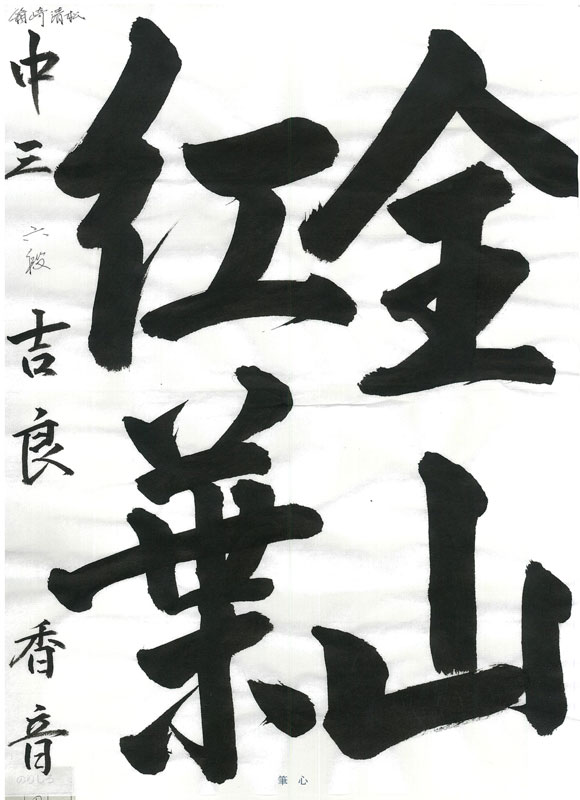 全山
紅葉
箱崎清松
中三 六段 吉良 香音
筆心